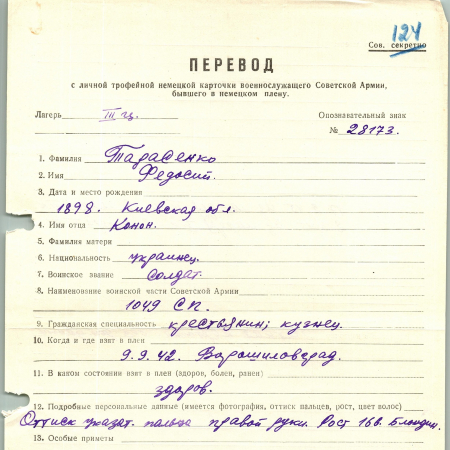 124
Сов. секретно
ПЕРЕВОД
с личной трофейной немецкой карточки военнослужащего Советской Армии,
бывшего в немецком плену.
Лагерь III ц. Опознавательный знак
№ 28173.
1. Фамилия Тарасенко
2. Имя Федосий.
3. Дата и место рождения
1898. Киевская обл.
4. Имя отца Конон.
5. Фамилия матери
6. Национальность украинец.
7. Воинское звание солдат.
8. Наименование воинской части Советской Армии
1049 СП.
9. Гражданская специальность крестьянин; кузнец.
10. Когда и где взят в плен
9.9.42. Ворошиловград.
11. В каком состоянии взят в плен (здоров, болен, ранен)
здоров.
12. Подробные персональные данные (имеется фотография, оттиск пальцев, рост, цвет волос)
Оттиск указат. пальца правой руки. Рост 168. Блондин.
13. Особые приметы